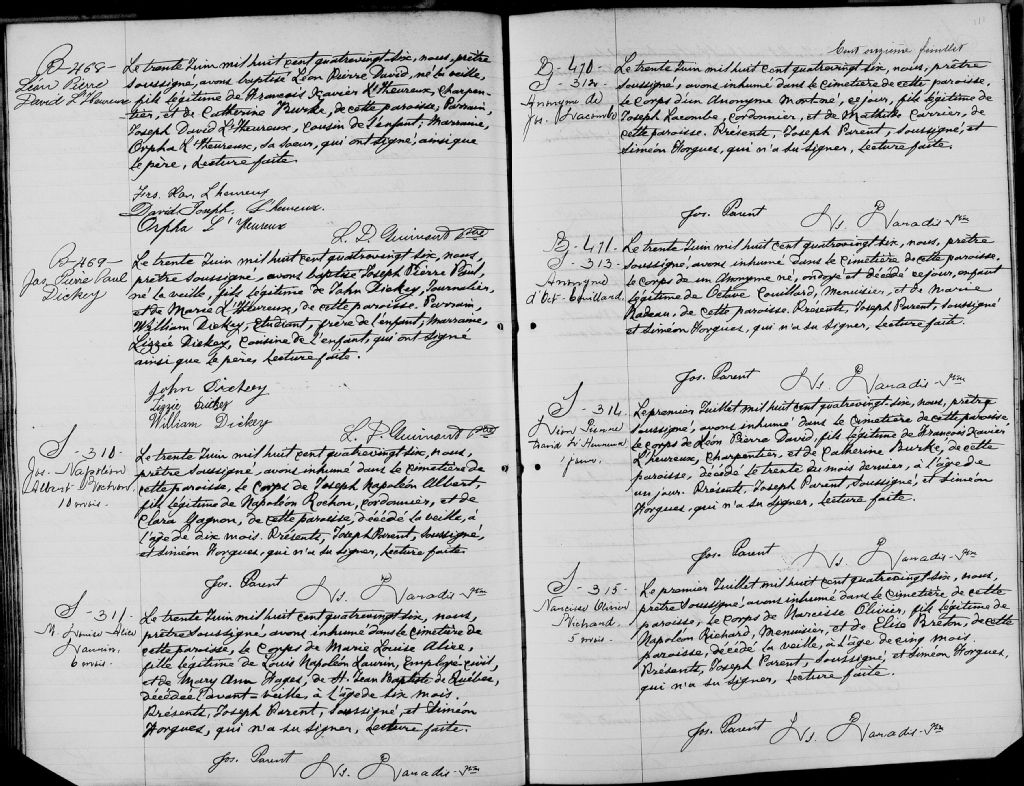 B-468-
Léon Pierre
David L'Heureux
Le trente Juin mil huit cent quatrevingt six, nous, prêtre
soussigné, avons baptisé Léon Pierre David, né la veille,
fils légitime de Francois Xavier L'Heureux, Charpen-
tier, et de Catherine Burke, de cette paroisse, Parrain,
Joseph David L'Heureux, cousin de l'enfant; Marraine,
Orpha L'Heureux, sa soeur, qui ont signé, ainsi que
le père, Lecture faite.
Frs. Xav. L'heureux
David Joseph. L'heureux.
Orpha L'Heureux
L. P. Guimard Ptre
B-469-
Jos. Pierre Paul
Dickey
Le trente Juin mil huit cent quatrevingt six, nous,
prêtre soussigné, avons baptisé Joseph Pierre Paul,
né la veille, fils légitime de John Dickey, Journalier,
et de Marie L'Heureux, de cette paroisse. Parrain,
William Dickey, Etudiant, frère de l'enfant, Marraine,
Lizzée Dickey, Cousine de l'enfant, qui ont signé
ainsi que le père, Lecture faite.
John Dickey
Lizzie Dickey
William Dickey
L. P. Guimard Ptre
S-310-
Jos. Napoléon
Albert Rochon.
10 mois.
Le trente Juin mil huit cent quatrevingt six, nous,
prêtre soussigné, avons inhumé dans le cimetière de
cette paroisse, le corps de Joseph Napoléon Albert,
fils légitime de Napoléon Rochon, cordonnier, et de
Clara Gagnon, de cette paroisse, décédé la veille, à
l'âge de dix mois. Présents, Joseph Parent, soussigné,
et Siméon Horgues, qui n'a su signer, Lecture faite.
Jos. Parent Ns. Paradis-ptre
S-311-
M. Louise Alice
Laurin.
6 mois.
Le trente Juin mil huit cent quatrevingt six, nous,
prêtre soussigné, avons inhumé dans le cimetière de
cette paroisse, le corps de Marie Louise Alice,
fille légitime de Louis Napoléon Laurin, Employé civil,
et de Mary Ann Hayes, de St. Jean Baptiste de Québec,
décédée l'avant-veille, à l'âge de six mois.
Présents, Joseph Parent, soussigné, et Siméon
Horgues, qui n'a su signer, Lecture faite.
Jos. Parent Ns. Paradis-ptre
111
Cent onzième feuillet
B-470-
S-312-
Anonyme de
Jos. Lacombe
Le trente Juin mil huit cent quatrevingt six, nous, prêtre
soussigné, avons inhumé dans le cimetière de cette paroisse,
le corps d'un Anonyme Mort né, ce jour, fils légitime de
Joseph Lacombe, cordonnier, et de Mathilde Carrier, de
cette paroisse. Présents, Joseph Parent, soussigné, et
Siméon Horgues, qui n'a su signer, Lecture faite.
Jos. Parent Ns. Paradis-ptre
B-471-
S-313-
Anonyme
d'Oct. Couillard.
Le trente Juin mil huit cent quatrevingt six, nous, prêtre
soussigné, avons inhumé dans le cimetière de cette paroisse.
le corps de un Anonyme né, ondoyé et décédé ce jour, enfant
légitime de Octave Couillard, Menuisier, et de Marie
Nadeau, de cette paroisse. Présents, Joseph Parent, soussigné
et Siméon Horgues, qui n'a su signer, Lecture faite.
Jos. Parent Ns. Paradis-ptre
S-314-
Léon Pierre
David L'Heureux
1 jour.
Le premier Juillet mil huit cent quatrevingt six, nous, prêtre
soussigné, avons inhumé dans le Cimetière de cette paroisse
le corps de Léon Pierre David, fils légitime de Francois Xavier
L'heureux, Charpentier, et de Catherine Burke, de cette
paroisse, décédé le trente du mois dernier, à l'âge de
un jour. Présents, Joseph Parent, soussigné, et Siméon
Horgues, qui n'a su signer, Lecture faite.
Jos. Parent Ns. Paradis-ptre
S-315-
Narcisse Olivier
Richard.
5 mois.
Le premier Juillet mil huit cent quatrevingt six, nous,
prêtre soussigné, avons inhumé dans le cimetière de cette
paroisse, le corps de Narcisse Olivier, fils légitime de
Napoléon Richard, Menuisier, et de Elise Breton, de cette
paroisse, décédé la veille, à l'âge de cinq mois.
Présents, Joseph Parent, soussigné, et Siméon Horgues,
qui n'a su signer, Lecture faite.
Jos. Parent Ns. Paradis-ptre